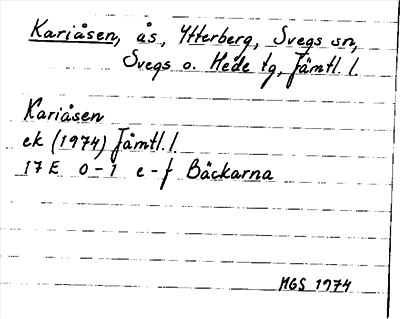 Kariåsen, ås, Ytterberg, Svegs sn,
Svegs o. Hede tg, Jämtl. l.
Kariåsen
ek (1974) Jämtl. l.
17 E 0-1 e-f Bäckarna
MGS 1974